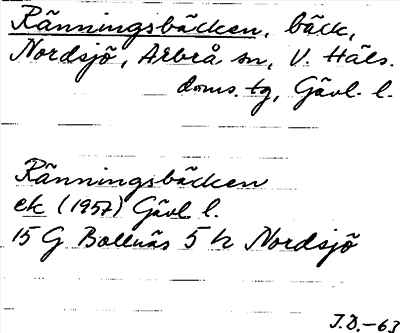 Ränningsbäcken, bäck,
Nordsjö, Arbrå sn, V. Häls.
doms. tg, Gävl. l.
Ränningsbäcken
ek (1957) Gävl l.
15 G Bollnäs 5 h Nordsjö
J.D.-63